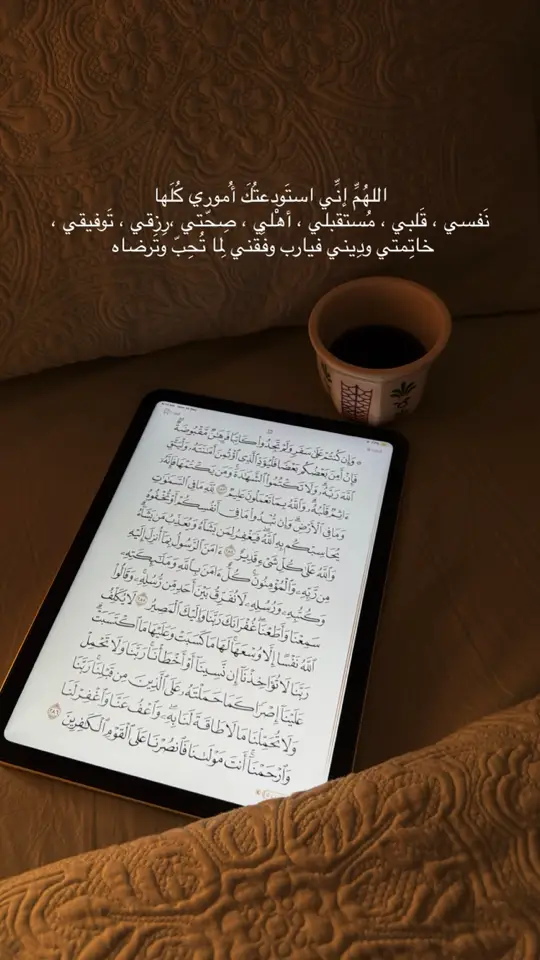 اللهُمِّ إنِّي استَودعتُكَ أُموري كُلَها
نَفسي ، قَلبي ، مُستقبلي ، أهْلي ، صِحّتي ،رِزقي ، تَوفيقي ،
خاتِمتي ودِيني فيارب وفقني لِما تُحِبّ وتَرضاه
۞ وَإِن كُنتُمْ عَلَىٰ سَفَرٍ وَلَمْ تَجِدُوا كَاتِبًا فَرِهَٰنٌ مَّقْبُوضَةٌ
فَإِنْ أَمِنَ بَعْضُكُم بَعْضًا فَلْيُؤَدِّ الَّذِي اؤْتُمِنَ أَمَٰنَتَهُ وَلْيَتَّقِ
اللَّهَ رَبَّهُ وَلَا تَكْتُمُوا الشَّهَٰدَةَ وَمَن يَكْتُمْهَا فَإِنَّهُ
ءَاثِمٌ قَلْبُهُ وَاللَّهُ بِمَا تَعْمَلُونَ عَلِيمٌ ٢٨٣ لِّلَّهِ مَا فِي السَّمَٰوَٰتِ
وَمَا فِي الْأَرْضِ وَإِن تُبْدُوا مَا فِي أَنفُسِكُمْ أَوْ تُخْفُوهُ
يُحَاسِبْكُم بِهِ اللَّهُ فَيَغْفِرُ لِمَن يَشَاءُ وَيُعَذِّبُ مَن يَشَاءُ
وَاللَّهُ عَلَىٰ كُلِّ شَيْءٍ قَدِيرٌ ٢٨٤ ءَامَنَ الرَّسُولُ بِمَا أُنزِلَ إِلَيْهِ
مِن رَّبِّهِ وَالْمُؤْمِنُونَ كُلٌّ ءَامَنَ بِاللَّهِ وَمَلَٰئِكَتِهِ
وَكُتُبِهِ وَرُسُلِهِ لَا نُفَرِّقُ بَيْنَ أَحَدٍ مِّن رُّسُلِهِ وَقَالُوا
سَمِعْنَا وَأَطَعْنَا غُفْرَانَكَ رَبَّنَا وَإِلَيْكَ الْمَصِيرُ ٢٨٥ لَا يُكَلِّفُ
اللَّهُ نَفْسًا إِلَّا وُسْعَهَا لَهَا مَا كَسَبَتْ وَعَلَيْهَا مَا اكْتَسَبَتْ
رَبَّنَا لَا تُؤَاخِذْنَا إِن نَّسِينَا أَوْ أَخْطَأْنَا رَبَّنَا وَلَا تَحْمِلْ
عَلَيْنَا إِصْرًا كَمَا حَمَلْتَهُ عَلَى الَّذِينَ مِن قَبْلِنَا رَبَّنَا
وَلَا تُحَمِّلْنَا مَا لَا طَاقَةَ لَنَا بِهِ وَاعْفُ عَنَّا وَاغْفِرْ لَنَا
وَارْحَمْنَا أَنتَ مَوْلَىٰنَا فَانصُرْنَا عَلَى الْقَوْمِ الْكَٰفِرِينَ ٢٨٦